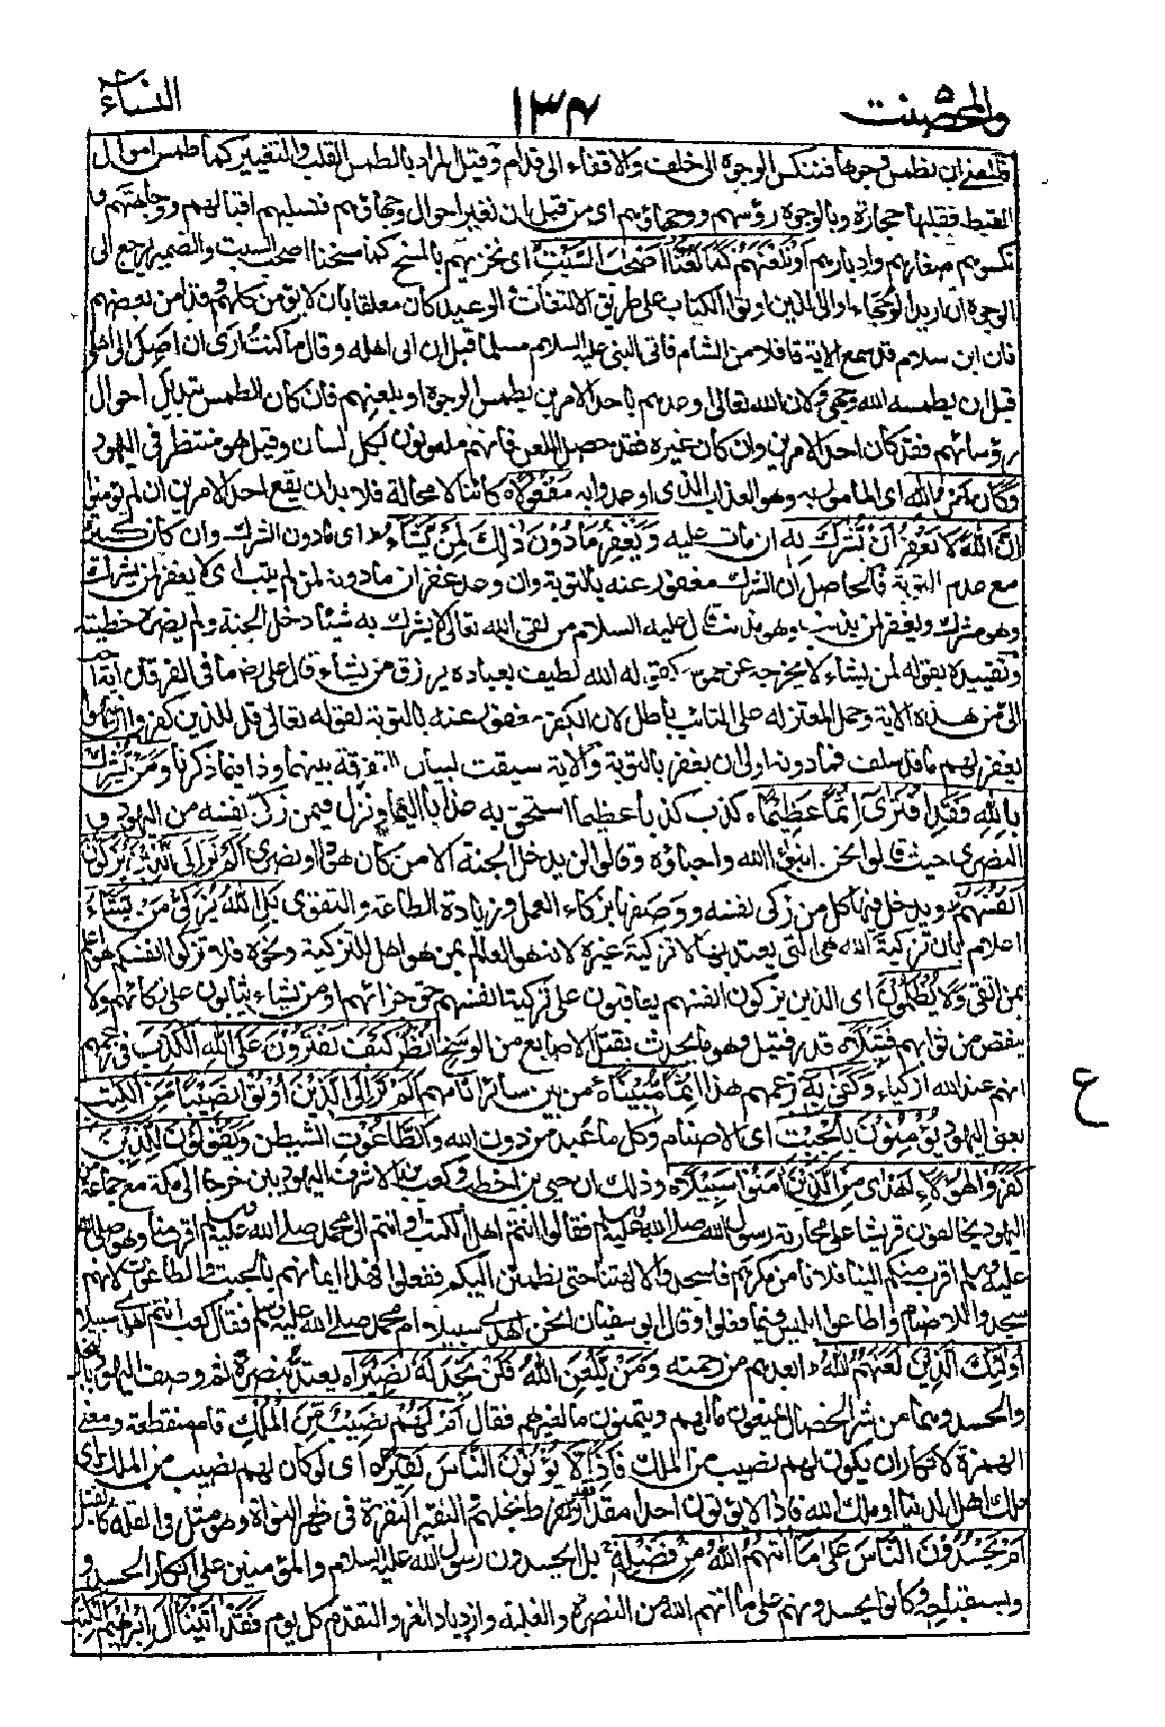 والمحصنت ٥
١٣٤
النساء ٤
فالمعنى ان نطمس وجوها فننكس الوجوه الى خلف والاقفاء الى قدام وقيل المراد بالطمس القلب والتغيير كما طمس اموال
القبط فقلبها حجارة وبالوجوه رؤسهم ووجهاؤهم اى من قبل ان نغير احوال وجهاؤهم فنسلبهم اقبالهم ووجاهتهم و
نكسوهم صغارهم وادبارهم أَوْ نَلْعَنَهُمْ كَمَا لَعَنَّا أَصْحٰبَ السَّبْتِ اى نخزيهم بالمسخ كما مسخنا اصحب السبت والضمير يرجع الى
الوجوه ان اريد الوجهاء او الى الذين اوتوا الكتاب على طريق الالتفات والوعيد كان معلقا بان لا يؤمن كلهم وقد امن بعضهم
فان ابن سلام قد سمع الاية قافلا من الشام فاتى النبى عليه السلام مسلما قبل ان ياتى اهله وقال ما كنت ارى ان اصل الى اهلى
قبل ان يطمس الله وجهى ولان الله تعالى اوعدهم باحد الامرين بطمس الوجوه او بلعنهم فان كان الطمس تبديل احوال
رؤسائهم فقد كان احد الامرين وان كان غيره فقد حصل اللعن فانهم ملعونون بكل لسان وقيل هو منتظر فى اليهود
وَكَانَ أَمْرُ اللّٰهِ اى المامور به وهو العذاب الذى اوعدوا به مَفْعُولًا كائنا لا محالة فلا بد ان يقع احد الامرين ان لم يؤمنوا
إِنَّ اللّٰهَ لَا يَغْفِرُ أَنْ يُّشْرَكَ بِهٖ ان مات عليه وَيَغْفِرُ مَا دُوْنَ ذٰلِكَ لِمَنْ يَّشَآءُ اى ما دون الشرك وان كان كبيرة
مع عدم التوبة فالحاصل ان الشرك مغفور عنه بالتوبة وان وعد غفران ما دونه لمن لم يتب اى لا يغفر لمن يشرك
وهو مشرك ويغفر لمن يذنب وهو مذنب قال عليه السلام من لقى الله تعالى لا يشرك به شيئا دخل الجنة ولم يضره خطيئته
وتقييده بقوله لمن يشاء لا يخرجه عن عمومه كقوله الله لطيف بعباده يرزق من يشاء قال على رض ما فى القرآن اية احب
الى من هذه الاية وحمل المعتزلة على التائب باطل لان الكفر مغفور عنه بالتوبة لقوله تعالى قل للذين كفروا ان ينتهوا
يغفر لهم ما قد سلف فما دونه اولى ان يغفر بالتوبة والاية سيقت لبيان التفرقة بينهما وذا فيما ذكرنا وَمَنْ يُّشْرِكْ
بِاللّٰهِ فَقَدِ افْتَرٰى إِثْمًا عَظِيْمًا كذب كذبا عظيما استحق به عذابا اليما ونزل فيمن زكى نفسه من اليهود و
النصرى حيث قالوا نحن ابنؤا الله واحباؤه وقالوا لن يدخل الجنة الا من كان هودا او نصرى أَلَمْ تَرَ إِلَى الَّذِيْنَ يُزَكُّوْنَ
أَنْفُسَهُمْ ويدخل فيها كل من زكى نفسه ووصفها بزكاء العمل وزيادة الطاعة والتقوى بَلِ اللّٰهُ يُزَكِّيْ مَنْ يَّشَآءُ
اعلام بان تزكية الله هى التى يعتد بها لا تزكية غيره لانه هو العالم بمن هو اهل للتزكية ونحوه فلا تزكوا انفسكم هو اعلم
بمن اتقى وَلَا يُظْلَمُوْنَ اى الذين يزكون انفسهم يعاقبون على تزكية انفسهم حق جزائهم او من يشاء يثابون على زكائهم ولا
ينقص من ثوابهم فَتِيْلًا قدر فتيل وهو ما يحدث بفتل الاصابع من الوسخ أُنْظُرْ كَيْفَ يَفْتَرُوْنَ عَلَى اللّٰهِ الْكَذِبَ فى زعمهم
انهم عند الله ازكياء وَكَفٰى بِهٖ بزعمهم هذا إِثْمًا مُّبِيْنًا من بين سائر اثامهم أَلَمْ تَرَ إِلَى الَّذِيْنَ أُوْتُوْا نَصِيْبًا مِّنَ الْكِتٰبِ
يعنى اليهود يُؤْمِنُوْنَ بِالْجِبْتِ اى الاصنام وكل ما عبد من دون الله وَالطَّاغُوْتِ الشيطن وَيَقُوْلُوْنَ لِلَّذِيْنَ
كَفَرُوْا هٰٓؤُلَآءِ أَهْدٰى مِنَ الَّذِيْنَ اٰمَنُوْا سَبِيْلًا وذلك ان حيى بن اخطب وكعب بن الاشرف اليهوديين خرجا الى مكة مع جماعة من
اليهود يحالفون قريشا على محاربة رسول الله صلى الله عليه وسلم فقالوا انتم اهل الكتب وانتم الى محمد صلى الله عليه وسلم اقرب منا وهو صلى الله
عليه وسلم اقرب منكم الينا فلا نامن مكركم فاسجدوا لالهتنا حتى نطمئن اليكم ففعلوا فهذا ايمانهم بالجبت والطاغوت لانهم
سجدوا للاصنام واطاعوا ابليس فيما فعلوا وقال ابو سفيان انحن اهدى سبيلا ام محمد صلى الله عليه وسلم فقال كعب انتم اهدى سبيلا
أُولٰٓئِكَ الَّذِيْنَ لَعَنَهُمُ اللّٰهُ ابعدهم من رحمته وَمَنْ يَّلْعَنِ اللّٰهُ فَلَنْ تَجِدَ لَهٗ نَصِيْرًا يعتد بنصره ثم وصف اليهود بالبخل
والحسد وهما من شر الخصال يمنعون ما لهم ويتمنون ما لغيرهم فقال أَمْ لَهُمْ نَصِيْبٌ مِّنَ الْمُلْكِ فام منقطعة ومعنى
الهمزة لانكار ان يكون لهم نصيب من الملك فَإِذًا لَّا يُؤْتُوْنَ النَّاسَ نَقِيْرًا اى لو كان لهم نصيب من الملك اى
ملك اهل الدنيا او ملك الله فاذا لا يؤتون احدا مقدار نقير لفرط بخلهم والنقير النقرة فى ظهر النواة وهو مثل فى القلة كالفتيل
أَمْ يَحْسُدُوْنَ النَّاسَ عَلٰى مَآ اٰتٰهُمُ اللّٰهُ مِنْ فَضْلِهٖ بل ايحسدون رسول الله عليه السلام والمؤمنين على انكار الحسد و
واستقباحه وكانوا يحسدونهم على ما اتهم الله من النصرة والغلبة وازدياد العز والتقدم كل يوم فَقَدْ اٰتَيْنَآ اٰلَ إِبْرٰهِيْمَ الْكِتٰبَ
ع